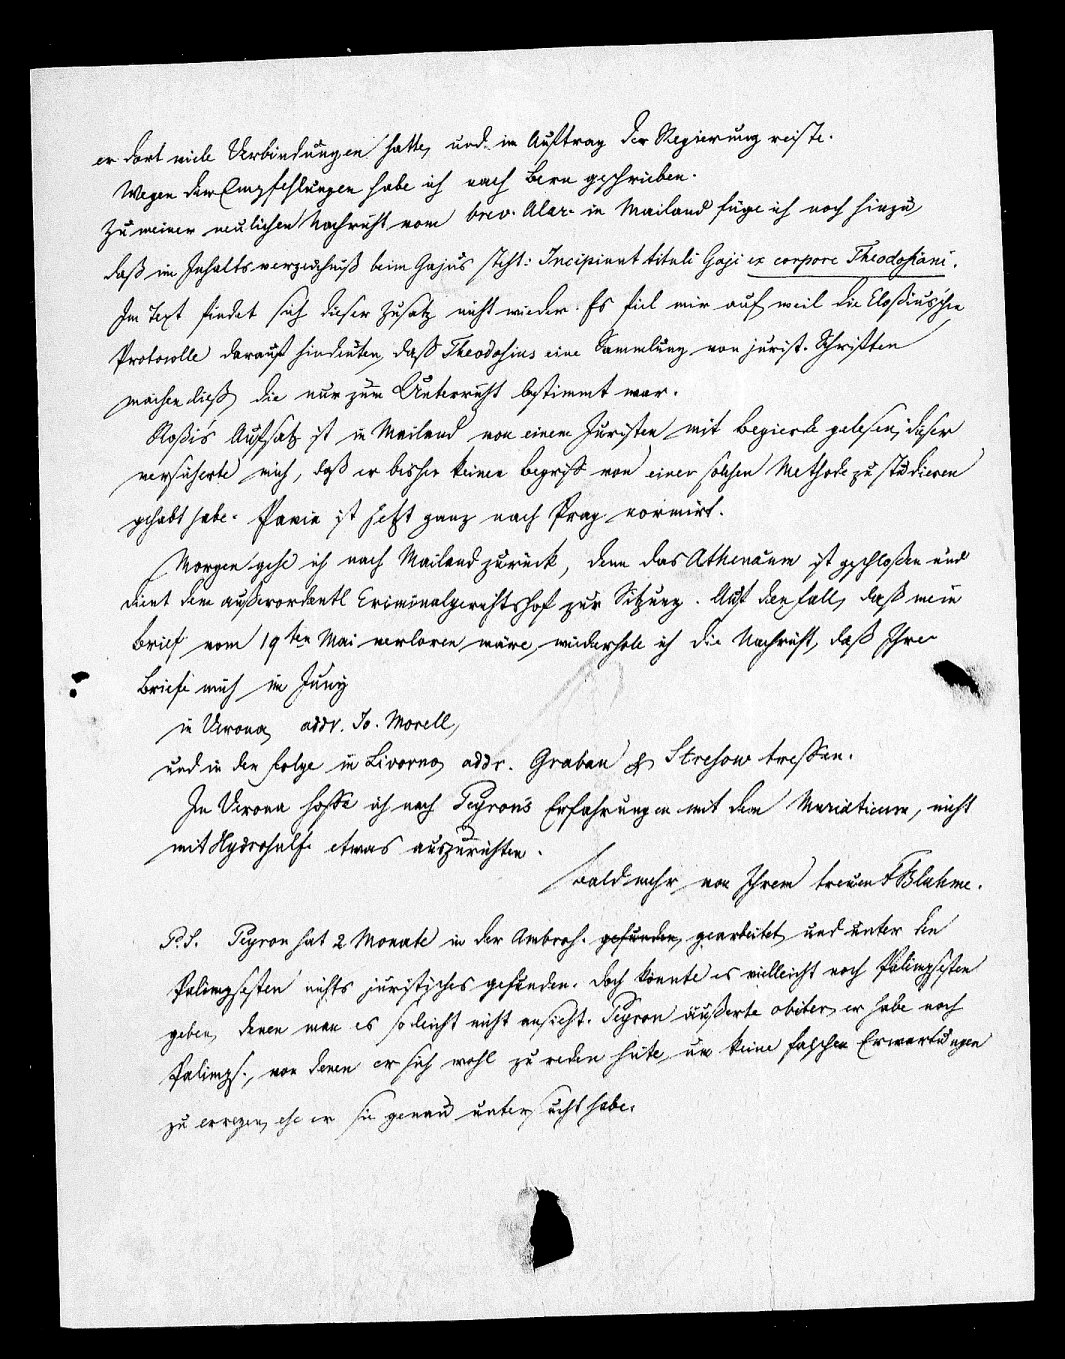 er dort viele Verbindungen hatte, und im Auftrag der Regierung reiste.
Wegen der Empfehlungen habe ich nach Bern geschrieben.
Zu meiner neulichen Nachricht vom brev. Alar. in Mailand füge ich noch hinzu
daß im Inhaltsverzeichniß beim Gajus steht: Incipiunt tituli Gaji ex corpore Theodosiani.
Im Text findet sich dieser Zusatz nicht wieder. Es fiel mir auf weil die Cloßius'schen
Protocolle darauf hindeuten, daß Theodosius eine Sammlung von jurist. Schriften
machen ließ, die nur zum Unterricht bestimmt war.
Cloßi's Aufsatz ist in Mailand von einem Juristen mit Begierde gelesen; dieser
versicherte mich, daß er bisher keinen Begriff von einer solchen Methode zu studieren
gehabt habe. Pavia ist jetzt ganz nach Prag normirt.
Morgen gehe ich nach Mailand zurück, denn das Athenäum ist geschloßen und
dient dem außerordentl Criminalgerichtshof zur Sitzung. Auf den Fall, daß mein
Brief vom 19ten Mai verloren wäre, wiederhole ich die Nachricht, daß Ihre
Briefe mich im Juny
in Verona, addr. Jo. Morell,
und in der Folge in Livorno, addr. Grabau & Stresow treffen.
In Verona hoffe ich nach Peyron's Erfahrungen mit dem Muriaticum, nicht
mit Hydrosulf. etwas auszurichten.
Bald mehr von Ihrem treuen F Bluhme.
P.S. Peyron hat 2 Monate in der Ambros. gefunden, gearbeitet, und unter den
Palimpsesten nichts juristisches gefunden. Doch könnte es vielleicht noch Palimpsesten
geben, denen man es so leicht nicht ansieht. Peyron äußerte obiter, er habe noch
Palimps., von denen er sich wohl zu reden hüte, um keine falschen Erwartungen
zu erregen, ehe er sie genau untersucht habe.